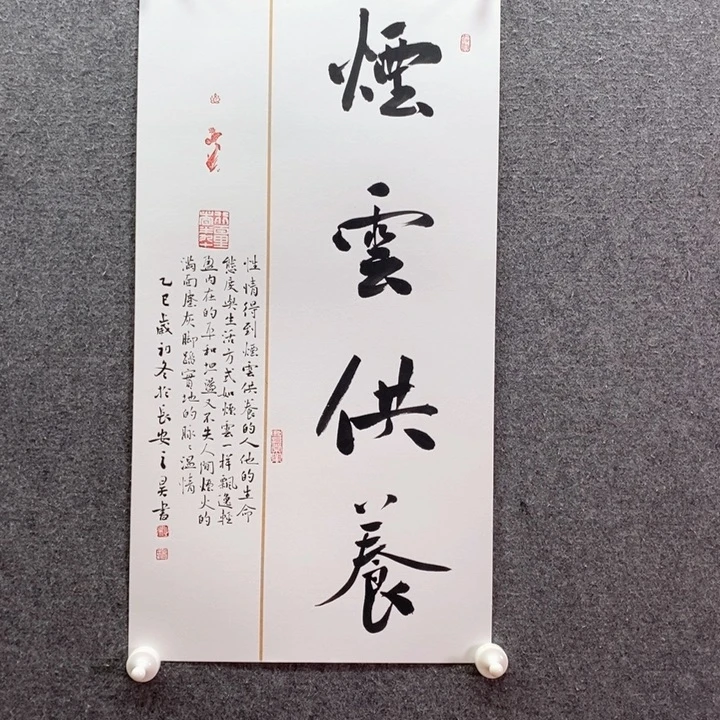 煙雲供養
性情得到煙雲供養的人他的生命
態度與生活方式如煙雲一样飄逸輕
盈内在的平和坦蕩又不失人间煙火的
满面塵灰脚踏實地的脉々温情
乙巳歲初冬於長安之昊書